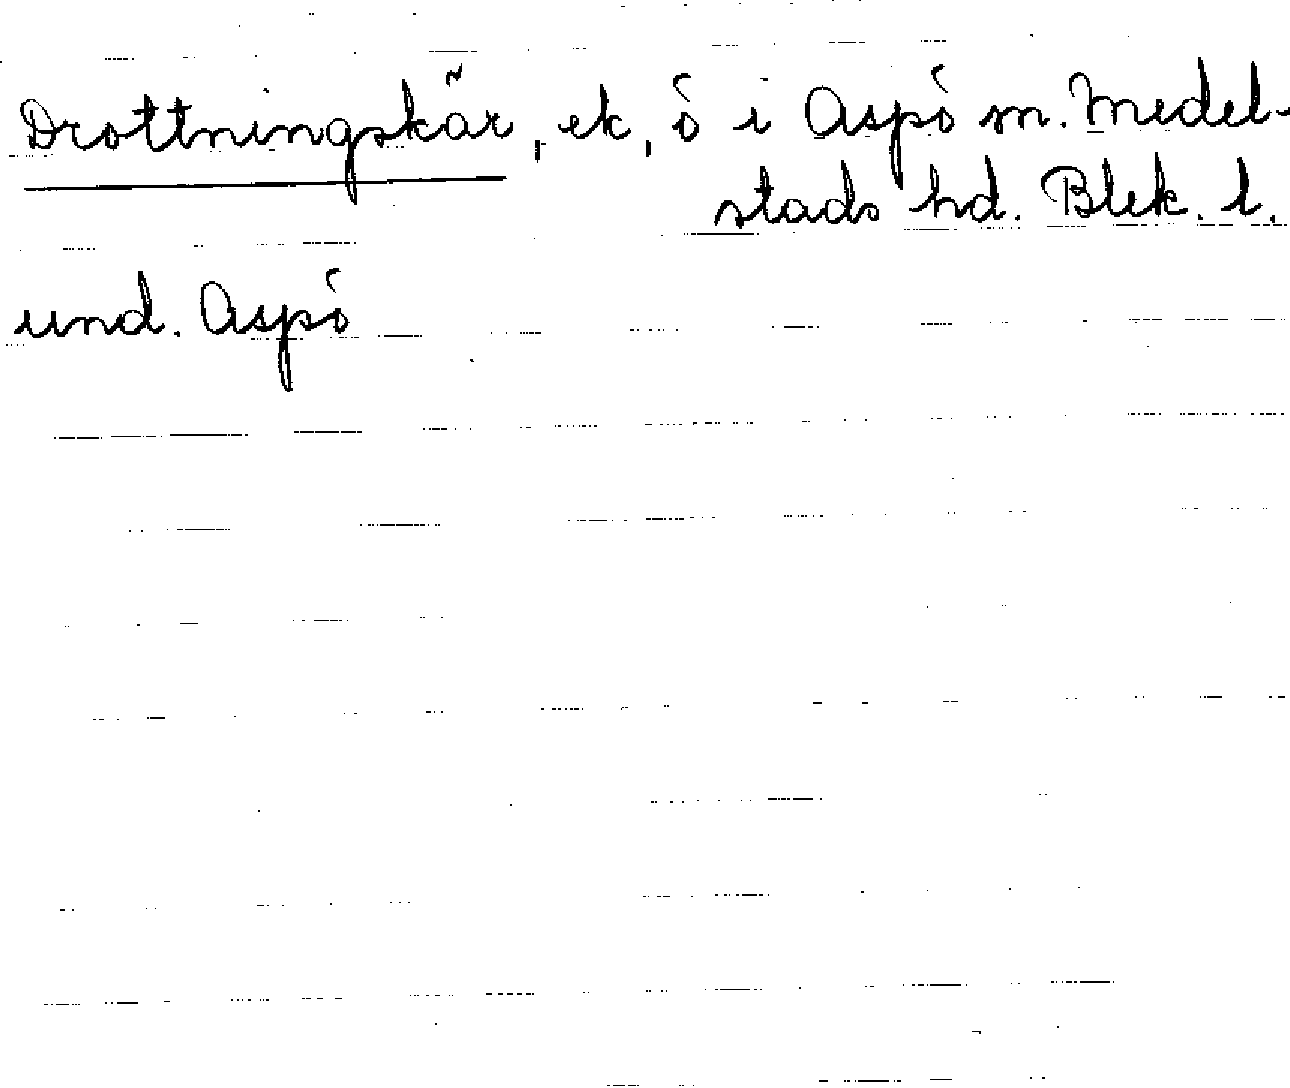 Drottningskär, ek, ö i Aspö sn. Medel-
stads hd. Blek. l.
und. Aspö